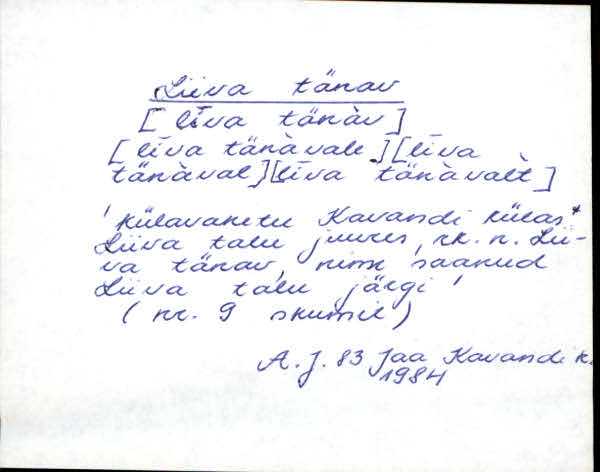 Liiva tänav
[līva tänàv]
[līva tänàvale] [līva
tänàval] [līva tänàvalt]
'külavahetee Kavandi külas
Liiva talu juures, rk. n. Lii-
va tänav, nimi saanud
Liiva talu järgi'
(nr. 9 skeemil)
A. J. 83 Jaa Kavandi k.
1984